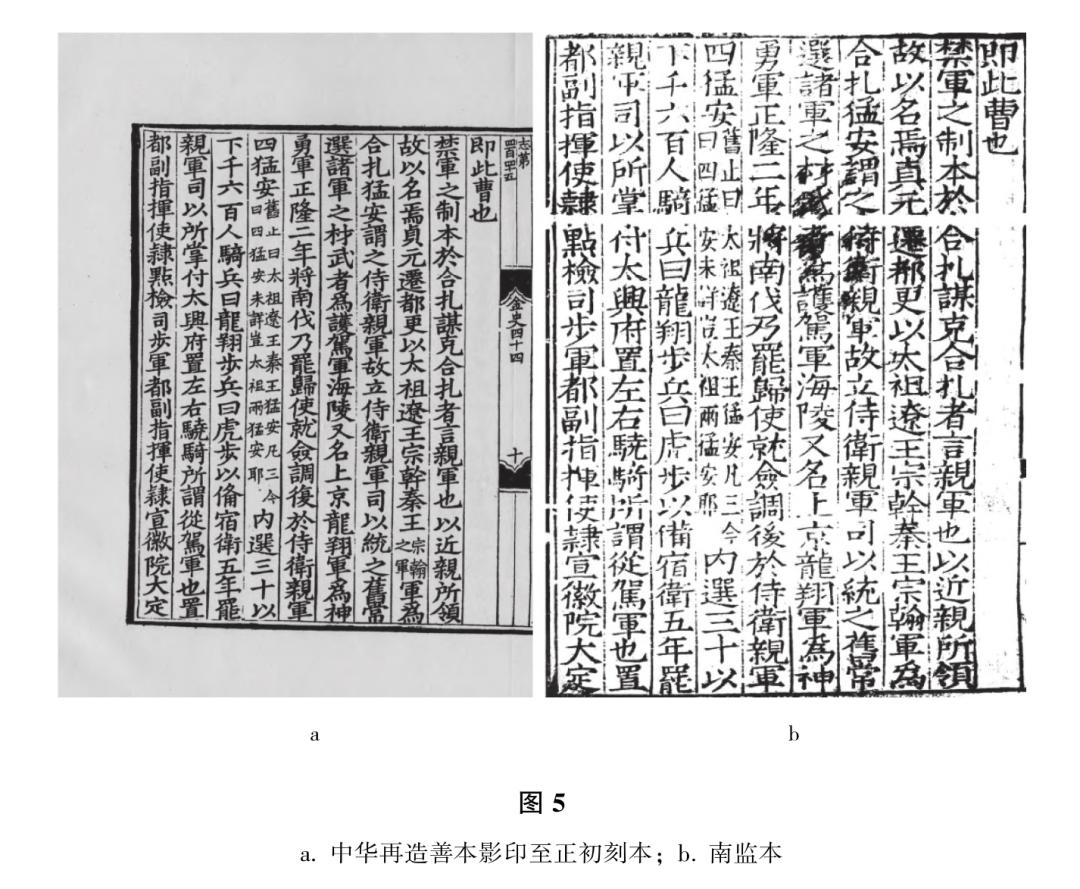 志第
金史四十四
十
即此曹也
禁軍之制本於合扎謀克合扎者言親軍也以近親所領
故以名焉貞元遷都更以太祖遼王宗幹秦王宗翰之軍爲
合扎猛安謂之侍衛親軍故立侍衛親軍司以統之舊當
選諸軍之材武者爲護駕軍海陵又名上京龍翔軍爲神
勇軍正隆二年將南伐乃罷歸使就僉調復於侍衛親軍
四猛安舊止曰太祖遼王秦王猛安凡三今曰四猛安未詳豈太祖兩猛安耶内選三十以
下千六百人騎兵曰龍翔步兵曰虎步以俻宿衛五年罷
親軍司以所掌付太興府置左右驍騎所謂從駕軍也置
都副指揮使隸點檢司步軍都副指揮使隸宣徽院大定
即此曹也
禁軍之制本於合扎謀克合扎者言親軍也以近親所領
故以名焉真元遷都更以太祖遼王宗幹秦王宗翰軍爲
合扎猛安謂之侍衛親軍故立侍衛親軍司以統之舊常
選諸軍之材武者爲護駕軍海陵又名上京龍翔軍爲神
勇軍正隆二年將南伐乃罷歸使就僉調後於侍衛親軍
四猛安舊止曰太祖遼王秦王猛安凡三今曰四猛安未詳豈太祖兩猛安耶内選三十以
下千六百人騎兵曰龍翔步兵曰虎步以備宿衛五年罷
親軍司以所掌付太興府置左右驍騎所謂從駕軍也置
都副指揮使隸點檢司步軍都副指揮使隸宣徽院大定
a
b
图 5
a. 中华再造善本影印至正初刻本；b. 南监本